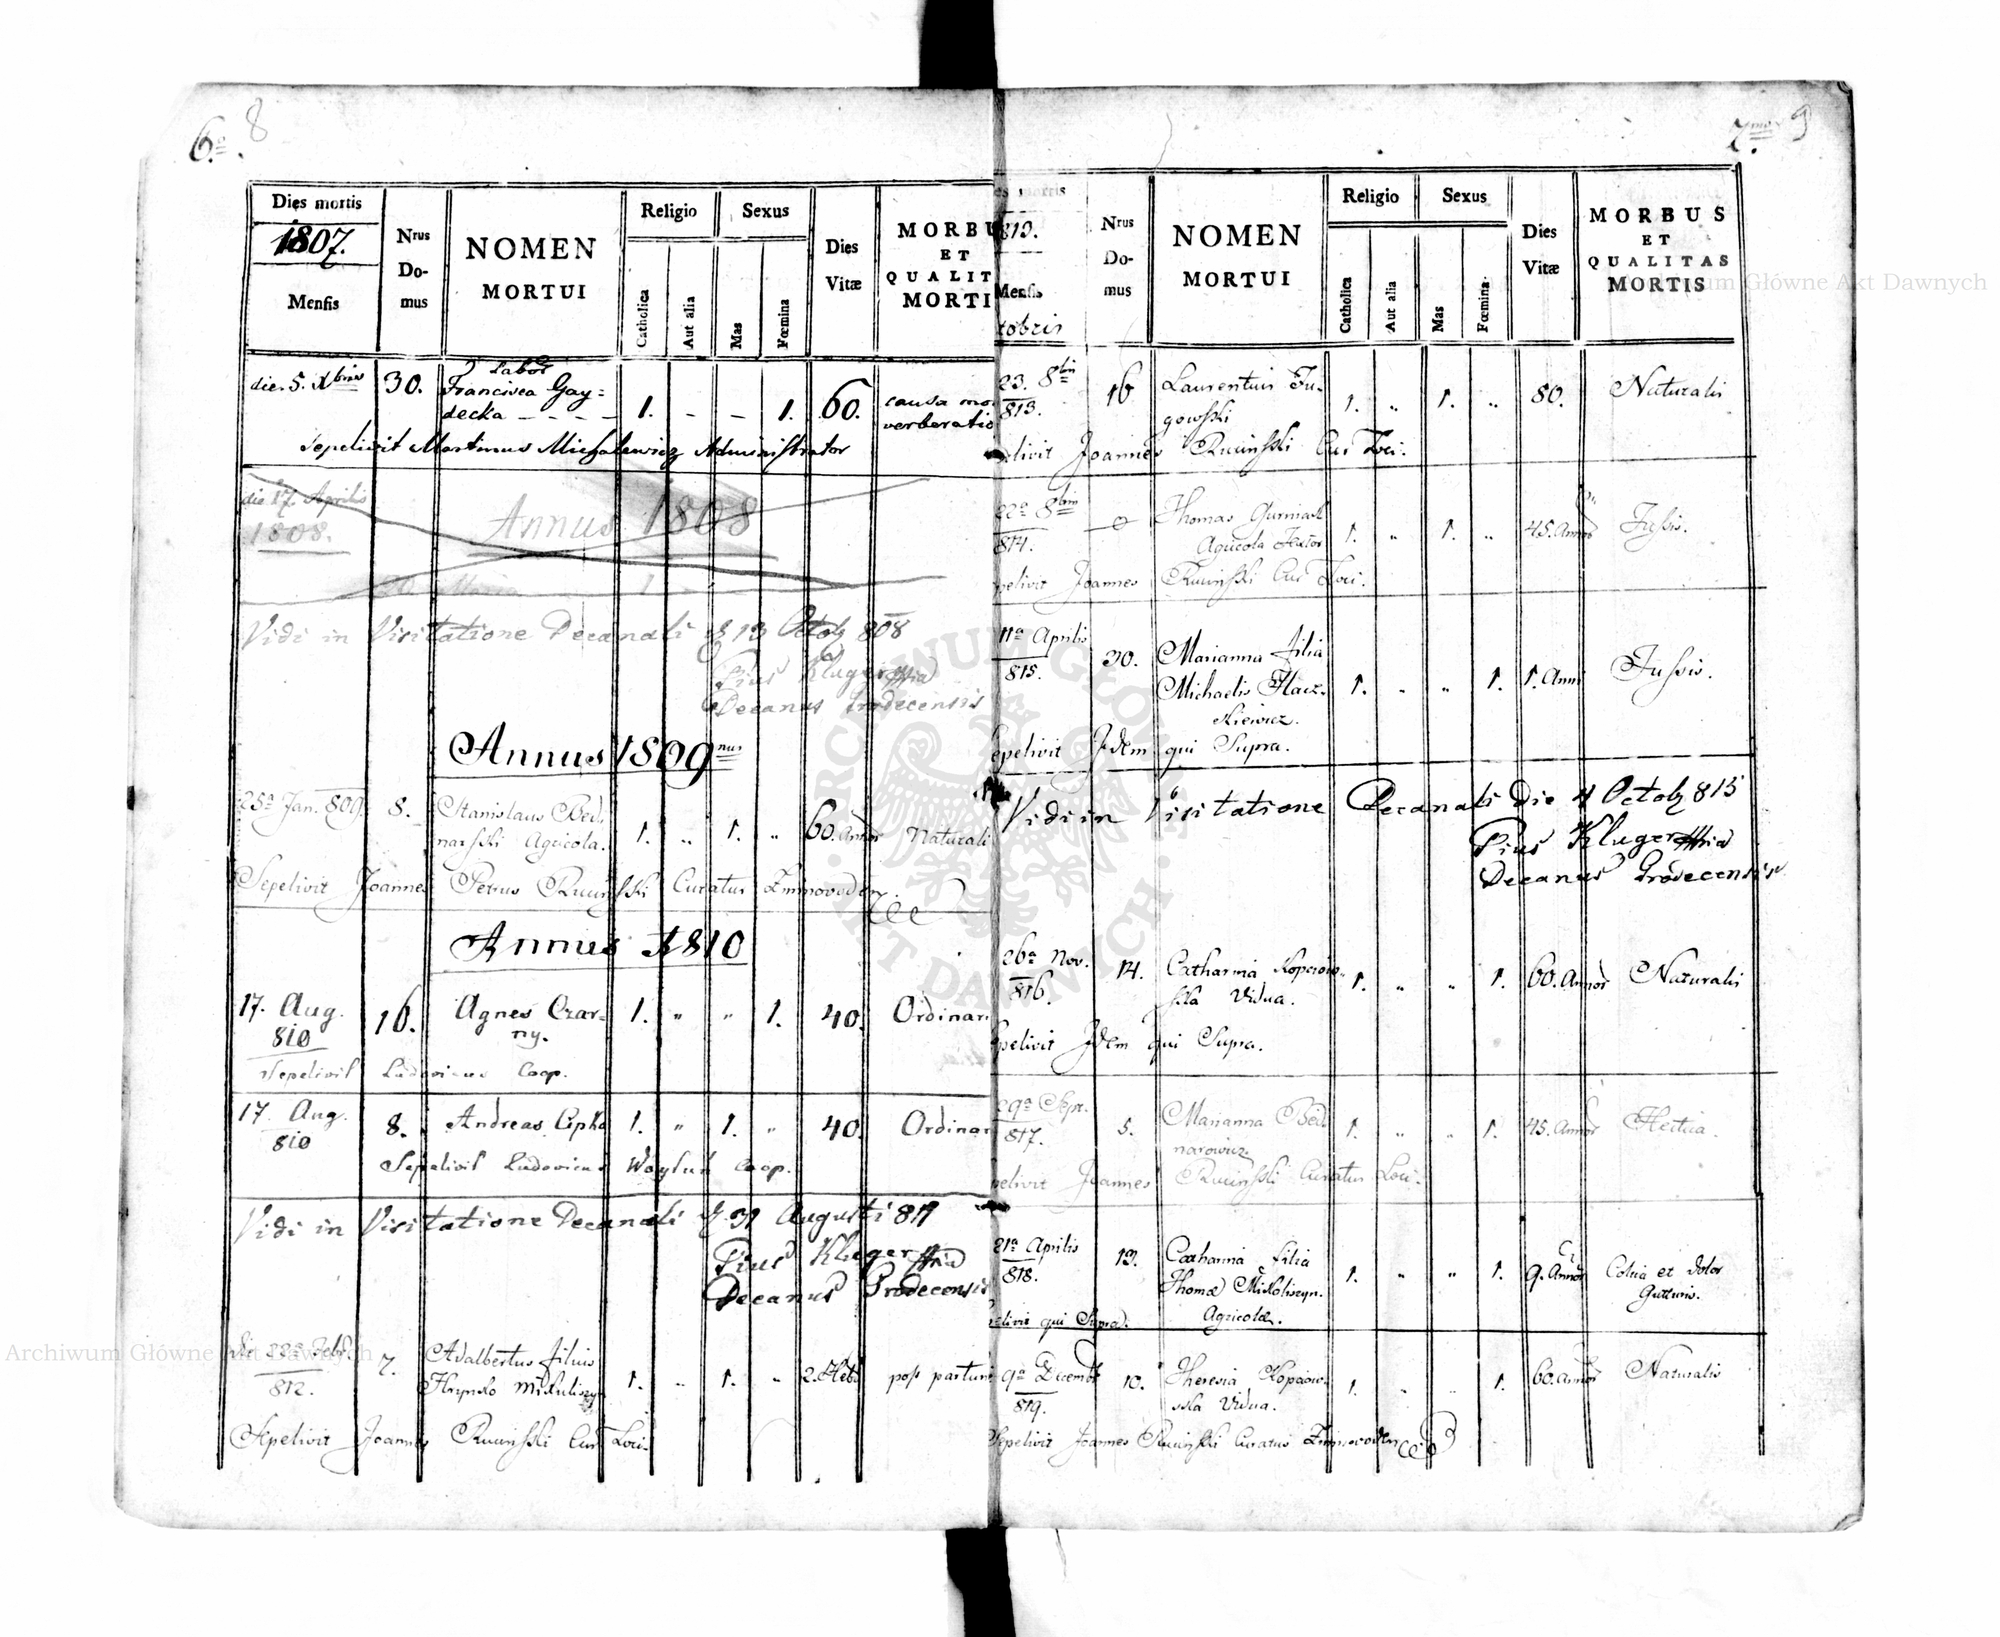 6ᵒ. 8
Dies mortis
1807.
Menſis
Nrus Do-mus
NOMEN MORTUI
Religio
Catholica
Aut alia
Sexus
Mas
Fœmina
Dies Vitæ
MORBU
ET
QUALIT
MORTI
die. 5. Xbris 30. Labor
Francisca Gay=
decka - - - - 1. - - 1. 60. causa mo
verberatio
Sepelivit Martinus Michalewicz Administrator
die 17. Aprilis
1808.
Annus 1808
Maria 1
Vidi in Visitatione Decanali d 13 Octob 808
Pius Kluger
Decanus Grodecensis
Annus 1809nus
25ª Jan. 809. 8. Stanislaus Bed-
narsski Agricola. 1. " 1. " 60. Annor Naturali
Sepelivit Joannes Petrus Rucinsski Curatus Zimnovoden.
Annus 1810
17. Aug. 16. Agnes Czar- 1. " " 1. 40. Ordinar
810 ny.
Sepelivit Ludovicus Coop.
17. Aug. 8. Andreas Cipko 1. " 1. " 40. Ordinar
810
Sepelivit Ludovicus Coop.
Vidi in Visitatione Decanali d 31 Augusti 811
Pius Kluger
Decanus Grodecensis
die 22ª Febr. 7. Adalbertus filius
812. Hrynko Mikuliszyn 1. " 1. " 2. Hebd post partum
Sepelivit Joannes Rucinsski Cur Loci.
7mo. 9
es mortis
813.
Menſis
tobris
Nrus Do-mus
NOMEN MORTUI
Religio
Catholica
Aut alia
Sexus
Mas
Fœmina
Dies Vitæ
MORBUS
ET
QUALITAS
MORTIS
23. 8bris 16 Laurentius Fu-
813. gowsski 1. " 1. " 80. Naturalis
elivit Joannes Rucinsski Cur Loci.
22ª 8bris Thomas Gurniak
814. Agricola Textor 1. " 1. " 45. Annor Tussis.
pelivit Joannes Rucinsski Cur Loci.
11ª Aprilis 30. Marianna filia
815. Michaelis Hacz- 1. " " 1. 1. Anni Tussis.
kiewicz.
Sepelivit Idem qui Supra.
Vidi in Visitatione Decanali die 4 Octob 815
Pius Kluger
Decanus Grodecensis
26ª Nov. 14. Catharina Koperow-
816. ska Vidua. 1. " " 1. 60. Annor Naturalis
epelivit Idem qui Supra.
29ª Sept. 5. Marianna Bed-
817. narowicz 1. " " 1. 45. Annor Hectica.
pelivit Joannes Rucinsski Curatus Loci.
21ª Aprilis 13. Catharina filia
818. Thomæ Mikoliszyn. 1. " " 1. 9. Annor Colica et dolor
Agricolæ. Gutturis.
elivit qui Supra.
9ª Decembr 10. Theresia Kopaow-
819. ska Vidua. 1. " " 1. 60. Annor Naturalis
Sepelivit Joannes Rucinsski Curatus Zimnovoden
Archiwum Główne Akt Dawnych
um Główne Akt Dawnych
ARCHIWUM GŁÓWNE AKT DAWNYCH